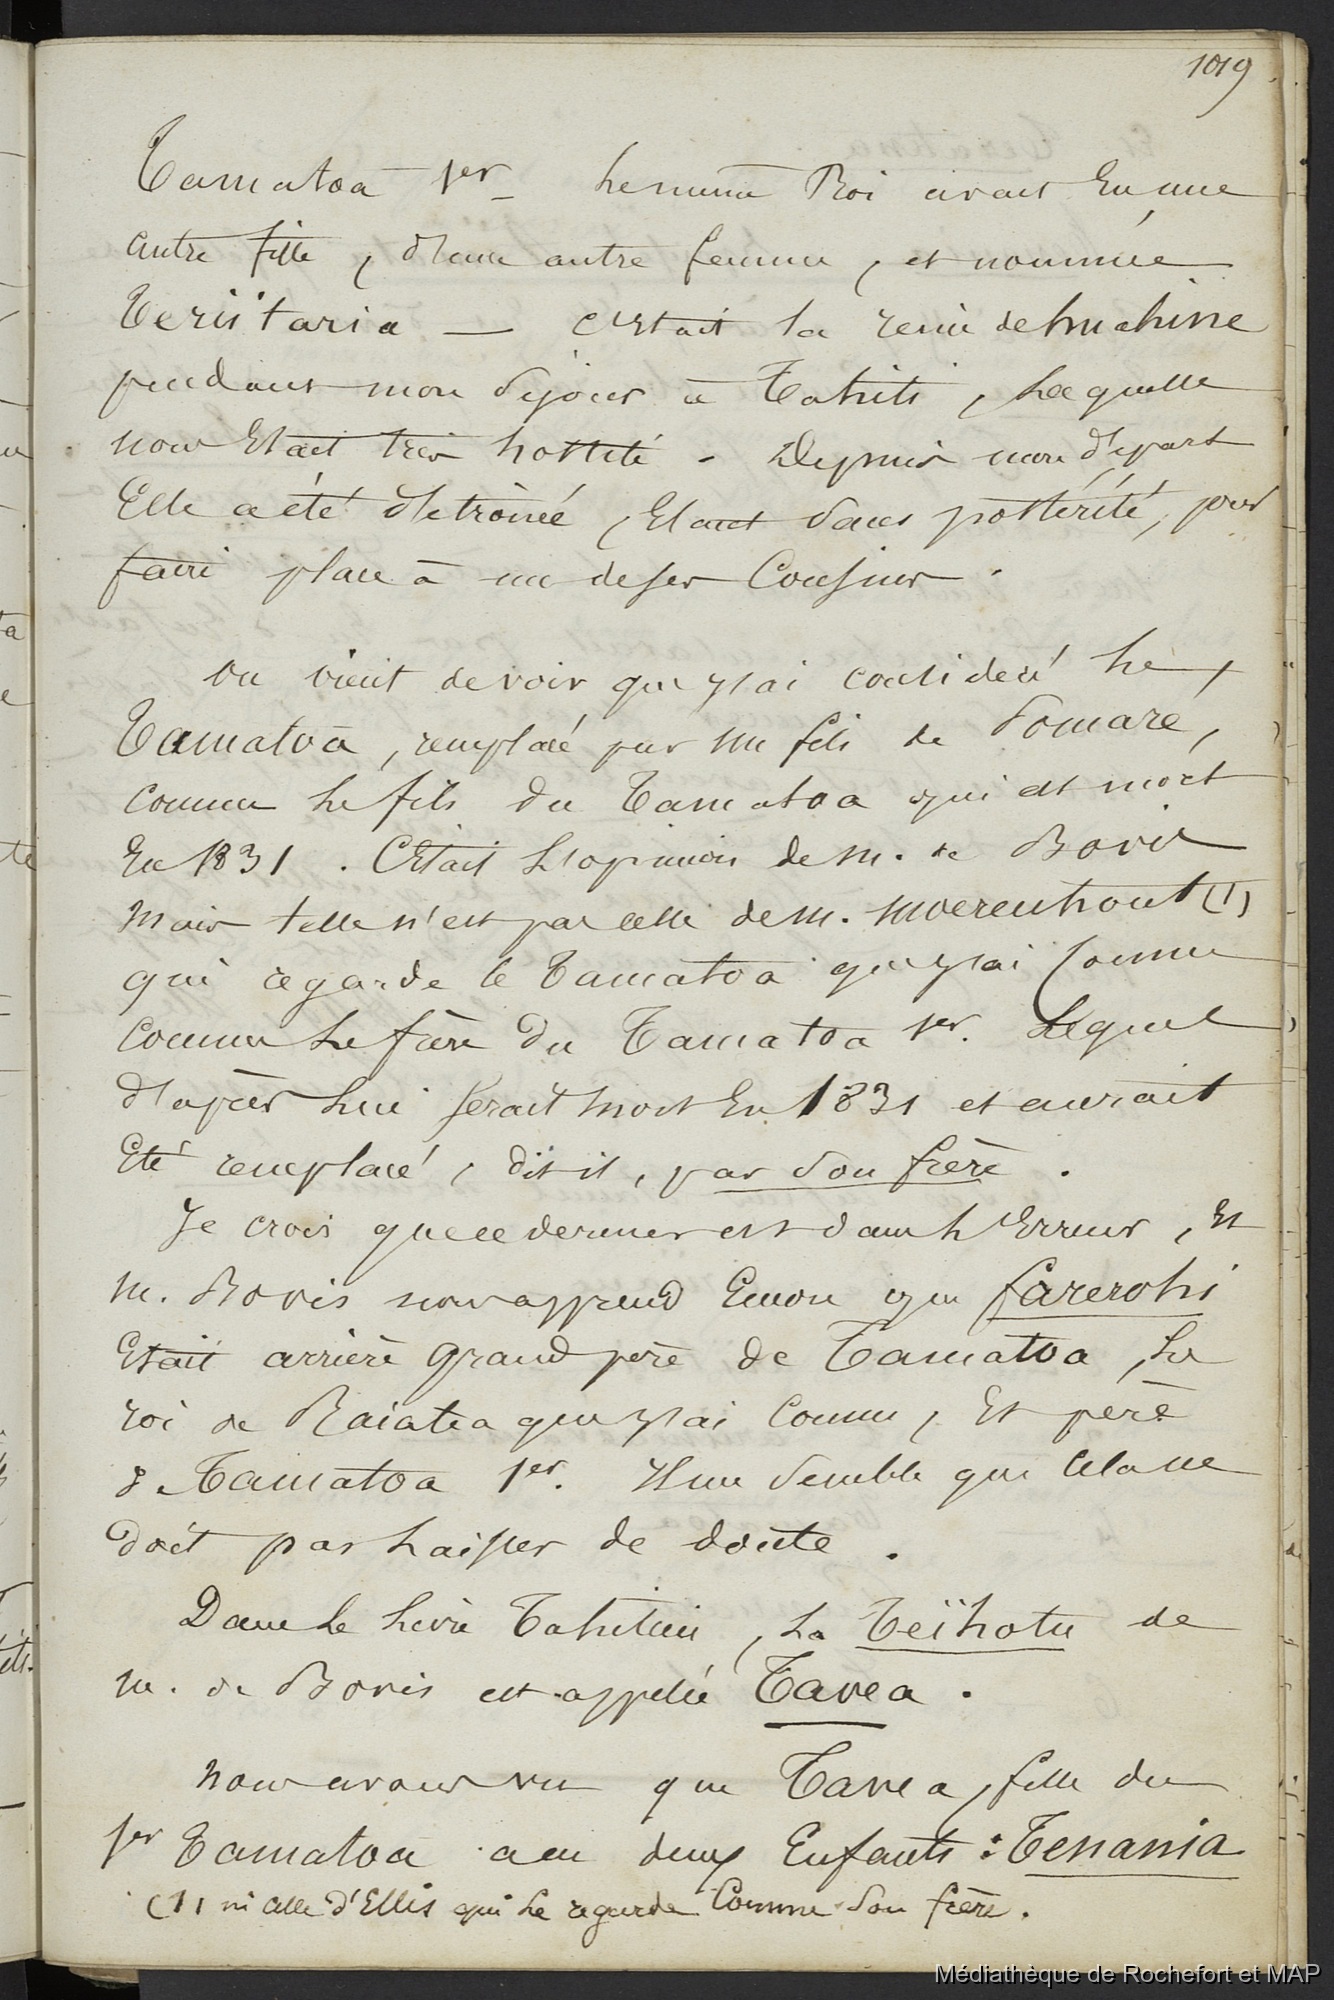 1019
Tamatoa 1er Le même Roi avait Eu une
autre fille, d'une autre femme, et nommée
Teriitaria — C'Etait la reine de huahine
pendant mon séjour à Tahiti, Laquelle
nous Etait très hostile. Depuis mon départ
Elle a été détrônée, Etant sans postérité, pour
faire place à un de ses Cousins.
On vient de voir que j'ai considéré Le
Tamatoa, remplacé par un fils de Pomaré,
comme le fils du Tamatoa qui est mort
En 1831. C'Etait L'opinion de M. de Bovis
Mais telle n'est pas celle de M. Moerenhout (1)
qui regarde le Tamatoa que j'ai Connu
comme Le frère du Tamatoa 1er. Lequel
d'après Lui serait mort En 1831 et aurait
Eté remplacé, dit-il, par son frère.
Je crois que ce dernier est dans L'Erreur, Et
M. Bovis nous apprend que farerohi
Etait arrière grand père de Tamatoa, Le
roi de Raiatea que j'ai Connu, Et père
de Tamatoa 1er. Il me semble que Cela ne
doit pas Laisser de doute.
Dans Le Livre Tahitien, La Teïhotu de
M. de Bovis est appelée Tavea.
Nous avons vu que Tavea, fille du
1er Tamatoa a eu deux Enfants : Tenania
(1) ni celle d'Ellis qui Le regarde Comme son frère.
Médiathèque de Rochefort et MAP